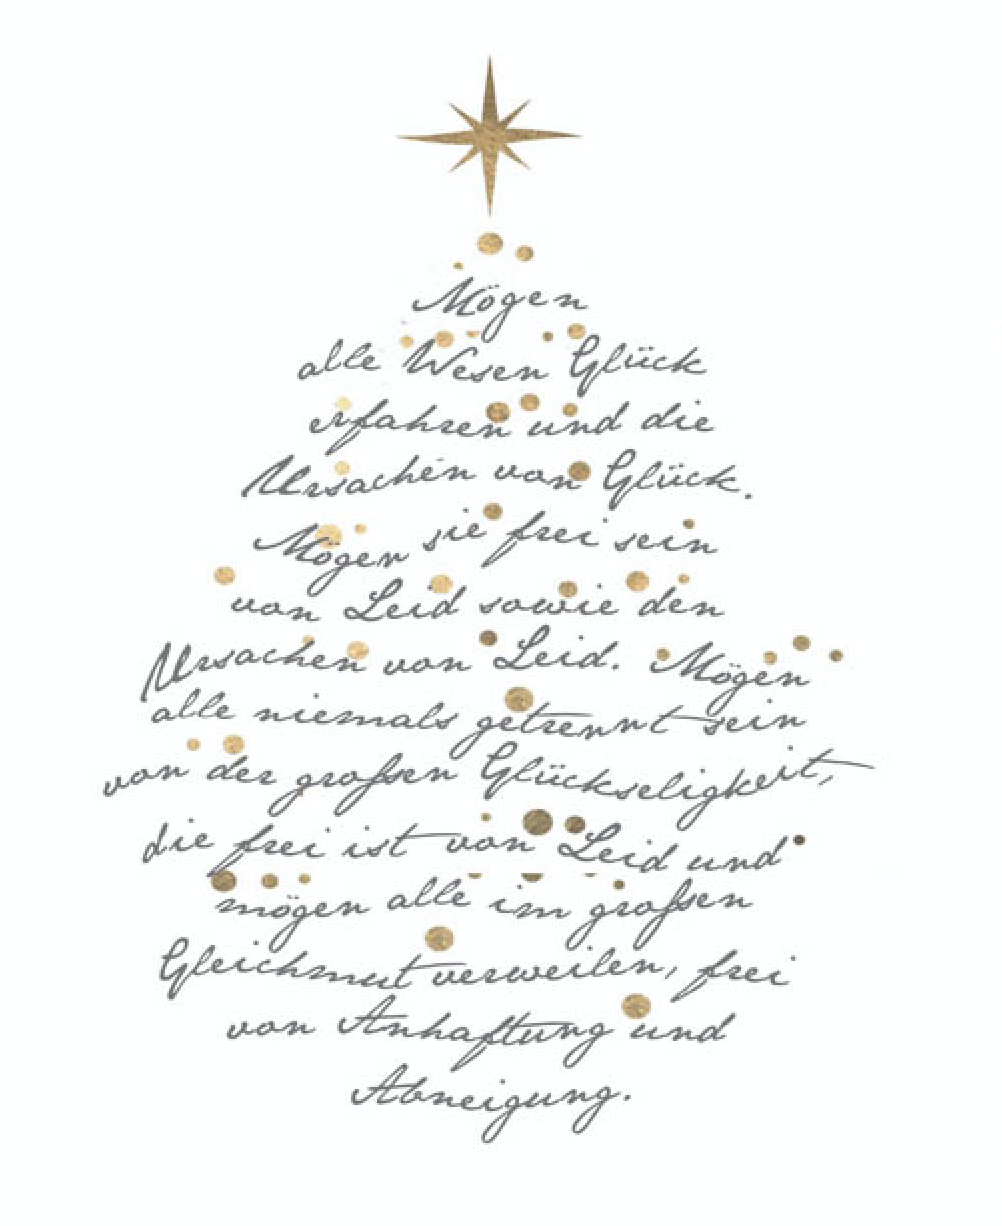 Mögen
alle Wesen Glück
erfahren und die
Ursachen von Glück.
Mögen sie frei sein
von Leid sowie den
Ursachen von Leid. Mögen
alle niemals getrennt sein
von der großen Glückseligkeit,
die frei ist von Leid und
mögen alle im großen
Gleichmut verweilen, frei
von Anhaftung und
Abneigung.